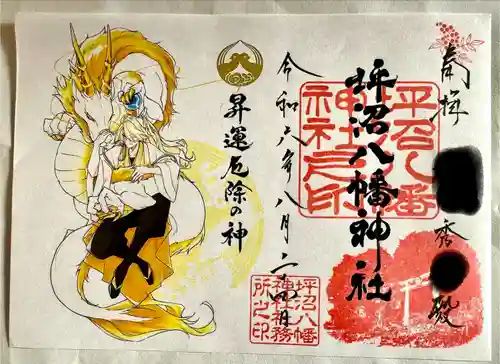 奉拝
秀
殿
坪沼八幡神社
坪沼八幡
神社之印
令和六年八月二十四日
昇運厄除の神
坪沼八幡
神社社務
所之印